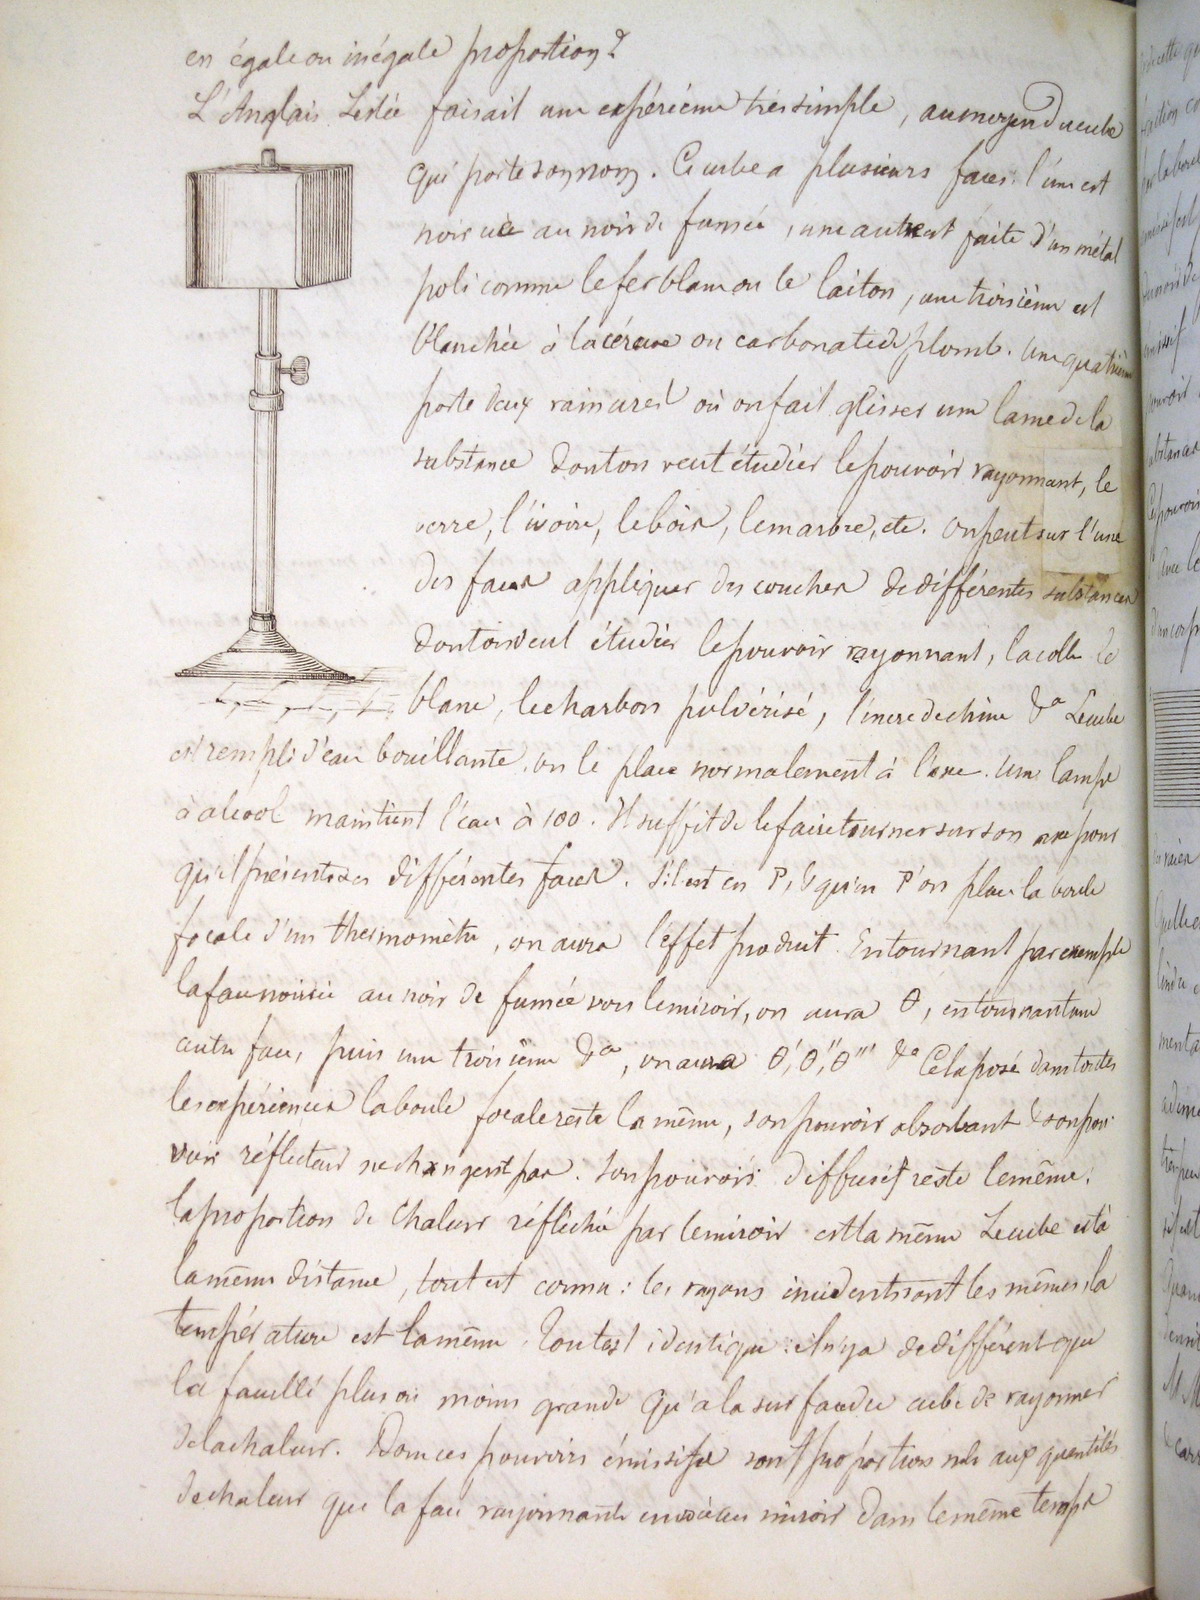 en égale ou inégale proportion?
L'Anglais Leslie faisait une expérience très simple, au moyen du cube
qui porte son nom. Ce cube a plusieurs faces: l'une est
noircie au noir de fumée, une autre est faite d'un métal
poli comme le fer blanc ou le laiton, une troisième est
blanchie à la céruse ou carbonate de plomb. Une quatrième
porte deux rainures où on fait glisser une lame de la
substance dont on veut étudier le pouvoir rayonnant, le
verre, l'ivoire, le bois, le marbre, etc. On peut sur l'une
des faces appliquer des couches de différentes substances
dont on veut étudier le pouvoir rayonnant, la colle, le
blanc, le charbon pulvérisé, l'encre de chine &a Le cube
est rempli d'eau bouillante, on le place normalement à l'axe. Une lampe
à alcool maintient l'eau à 100. Il suffit de le faire tourner sur son axe pour
qu'il présente ses différentes faces. S'il est en P, & qu'en P' on place la boule
focale d'un thermomètre, on aura l'effet produit. En tournant par exemple
la face noircie au noir de fumée vers le miroir, on aura θ, en tournant une
autre face, puis une troisième &a, on aura θ', θ'', θ''' &a Cela posé dans toutes
les expériences la boule focale reste la même, son pouvoir absorbant & son pou-
voir réflecteur ne changent pas. Son pouvoir diffusif reste le même.
la proportion de chaleur réfléchie par le miroir est la même Le cube est à
la même distance, tout est connu: les rayons incidents sont les mêmes, la
température est la même. Tout est identique: il n'y a de différent que
la faculté plus ou moins grande qu'a la surface du cube de rayonner
de la chaleur. Donc ces pouvoirs émissifs sont proportionnels aux quantités
de chaleur que la face rayonnante envoie au miroir dans le même temps